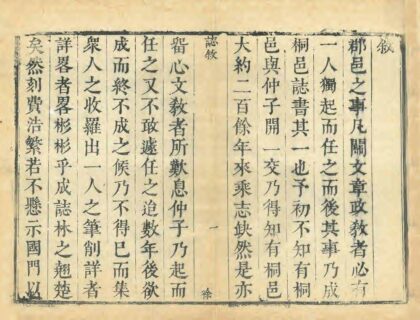 敘
郡邑之事凡關文章政敎者必有
一人獨起而任之而後其事乃成
桐邑誌書其一也予初不知有桐
邑與仲子開一交乃得知有桐邑
大約二百餘年來乘志缺然是亦
誌敘
一
徐
留心文敎者所歎息仲子乃起而
任之又不敢遽任之迨數年後欲
成而終不成之候乃不得已而集
衆人之收羅出一人之筆削詳者
詳畧者畧彬彬乎成誌林之翹楚
矣然刻費浩繁若不懸示國門以